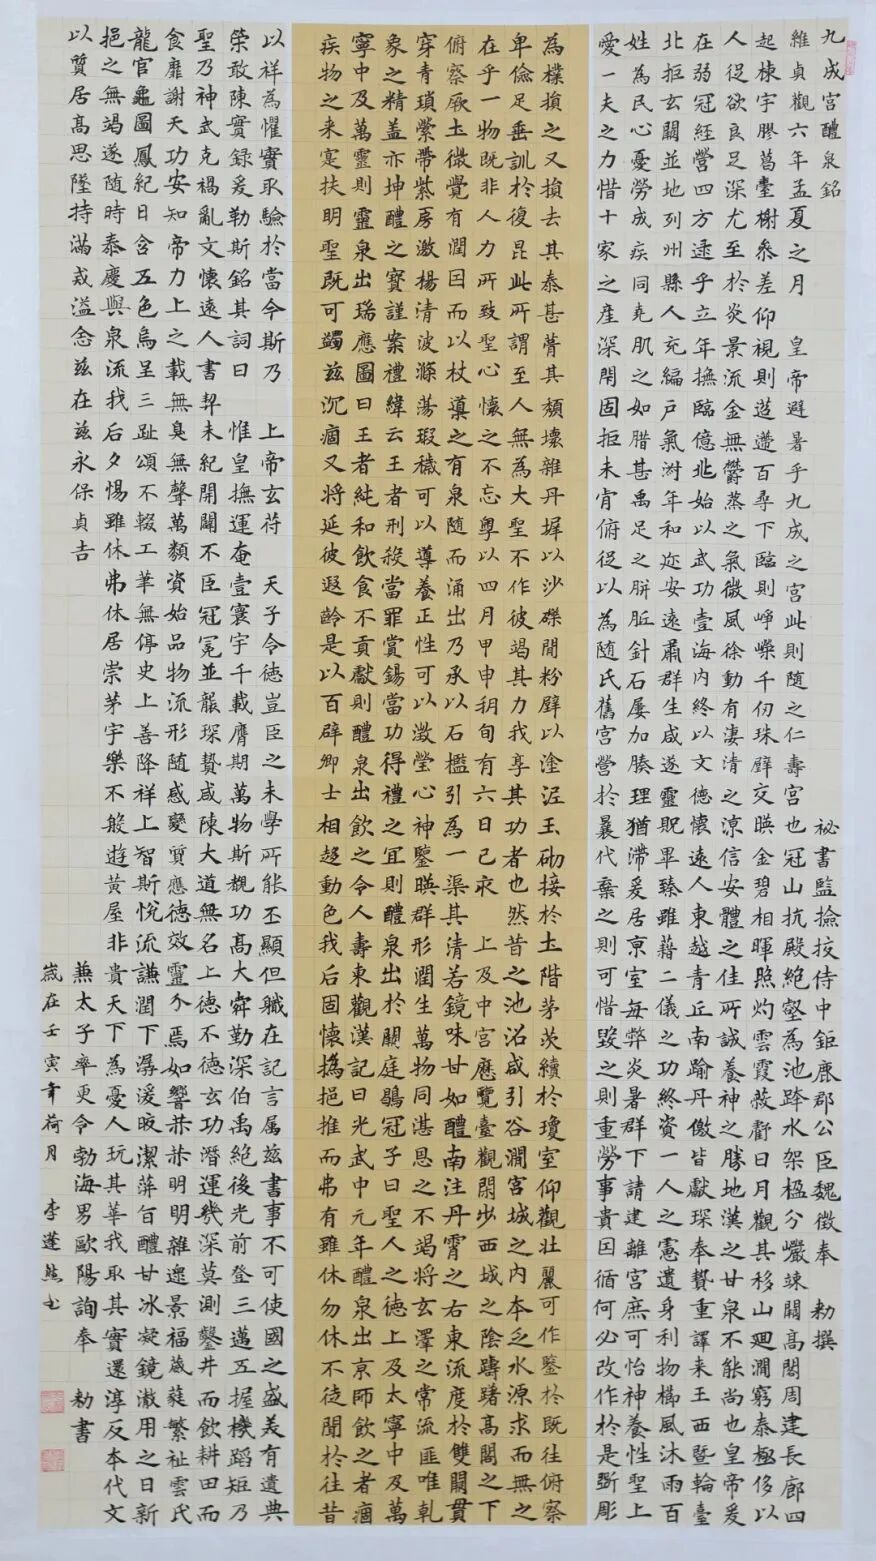 九成宮醴泉銘　祕書監撿挍侍中鉅鹿郡公臣魏徵奉　勑撰
維貞觀六年孟夏之月　皇帝避暑乎九成之宮此則隨之仁壽宮也冠山抗殿絕壑為池跨水架楹分巖竦闕高閣周建長廊四
起棟宇膠葛臺榭參差仰視則迢遰百尋下臨則崢嶸千仞珠璧交暎金碧相暉照灼雲霞蔽虧日月觀其移山廻澗窮泰極侈以
人從欲良足深尤至於炎景流金無鬱蒸之氣微風徐動有淒清之涼信安體之佳所誠養神之勝地漢之甘泉不能尚也皇帝爰
在弱冠經營四方逮乎立年撫臨億兆始以武功壹海內終以文德懷遠人東越青丘南踰丹徼皆獻琛奉贄重譯来王西暨輪臺
北拒玄闕並地列州縣人充編戶氣淑年和迩安遠肅群生咸遂靈貺畢臻雖藉二儀之功終資一人之憲遺身利物櫛風沐雨百
姓為民心憂勞成疾同堯肌之如腊甚禹足之胼胝針石屢加腠理猶滯爰居京室每弊炎暑群下請建離宮庶可怡神養性聖上
愛一夫之力惜十家之產深閇固拒未肯俯從以為隨氏舊宮營於曩代棄之則可惜毀之則重勞事貴因循何必改作於是斲彫
為樸損之又損去其泰甚葺其頹壞雜丹墀以沙礫間粉壁以塗泥玉砌接於土階茅茨續於瓊室仰觀壯麗可作鑒於既往俯察
卑儉足垂訓於後昆此所謂至人無為大聖不作彼竭其力我享其功者也然昔之池沼咸引谷澗宮城之內本乏水源求而無之
在乎一物既非人力所致聖心懷之不忘粵以四月甲申朔旬有六日己亥　上及中宮歷覽臺觀閑步西城之陰躊躇高閣之下
俯察厥土微覺有潤因而以杖導之有泉隨而涌出乃承以石檻引為一渠其清若鏡味甘如醴南注丹霄之右東流度於雙闕貫
穿青瑣縈帶紫房激揚清波滌蕩瑕穢可以導養正性可以澂瑩心神鑒暎群形潤生萬物同湛恩之不竭將玄澤之常流匪唯乹
象之精盖亦坤醴之寶謹案禮緯云王者刑殺當罪賞錫當功得禮之宜則醴泉出於闕庭鶡冠子曰聖人之德上及太寧中及萬
寧中及萬靈則靈泉出瑞應圖曰王者純和飲食不貢獻則醴泉出飲之令人壽東觀漢記曰光武中元年醴泉出京師飲之者痼
疾物之来寔扶明聖既可蠲兹沉痼又將延彼遐齡是以百辟卿士相趍動色我后固懷撝挹推而弗有雖休勿休不徒聞於往昔
以祥為懼實取驗於當今斯乃　上帝玄符　天子令德豈臣之未學所能丕顯但軄在記言属兹書事不可使國之盛美有遺典
榮敢陳實録爰勒斯銘其詞曰　惟皇撫運奄壹寰宇千載膺期萬物斯覩功高大舜勤深伯禹絕後光前登三邁五握機蹈矩乃
聖乃神武克禍亂文懷遠人書契未紀開闢不臣冠冕並襲琛贄咸陳大道無名上德不德玄功潛運幾深莫測鑿井而飲耕田而
食靡謝天功安知帝力上之載無臭無聲萬類資始品物流形随感變質應德效靈介焉如響赫赫明明雜遝景福葳蕤繁祉雲氏
龍官龜圖鳳紀日含五色烏呈三趾頌不輟工筆無停史上善降祥上智斯悅流謙潤下潺湲皎潔蓱旨醴甘冰凝鏡澈用之日新
挹之無竭遂随時泰慶與泉流我后夕惕雖休弗休居崇茅宇樂不般遊黃屋非貴天下為憂人玩其華我取其實還淳反本代文
以質居高思墜持滿戒溢念兹在兹永保貞吉　兼太子率更令勃海男歐陽詢奉　勑書
歲在壬寅年荷月　李蓬然书